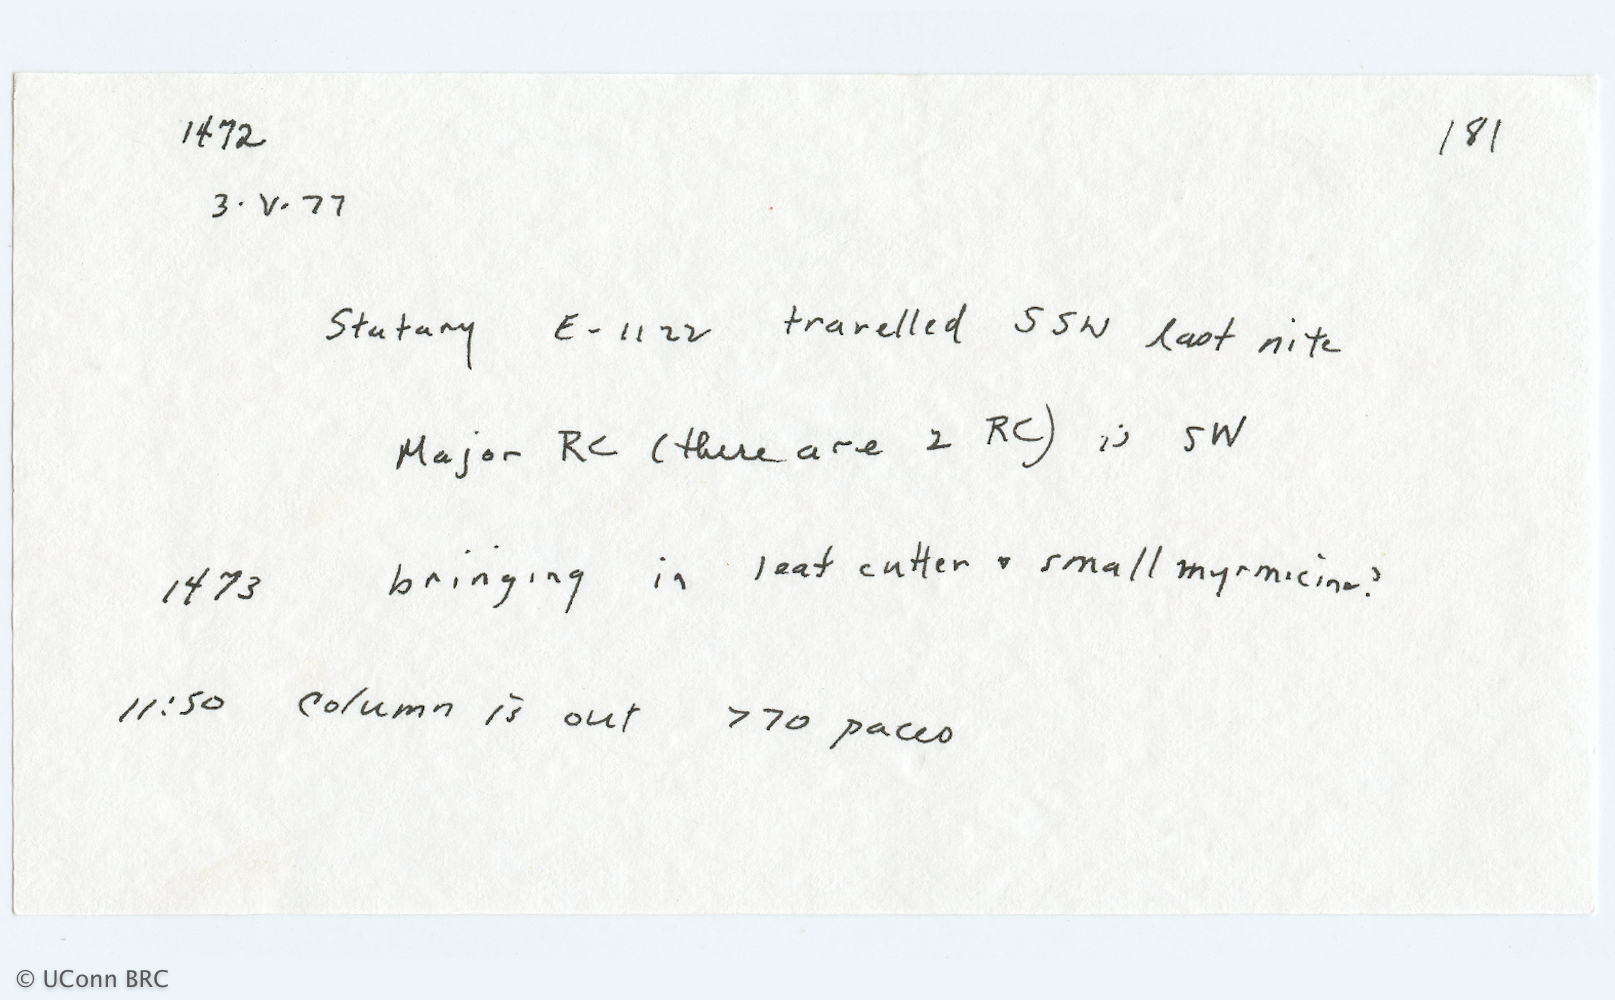 1472 181
3.V.77
Statary E-1122 travelled SSW last nite
Major RC (there are 2 RC) is SW
1473 bringing in leaf cutter + small myrmicine?
11:50 column is out >70 paces
© UConn BRC